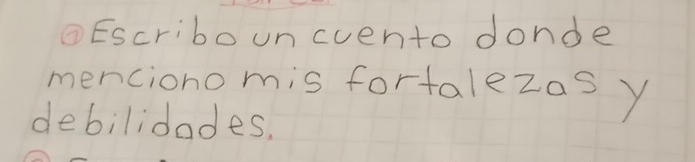 ① Escribo un cuento donde
menciono mis fortalezas y
debilidades.